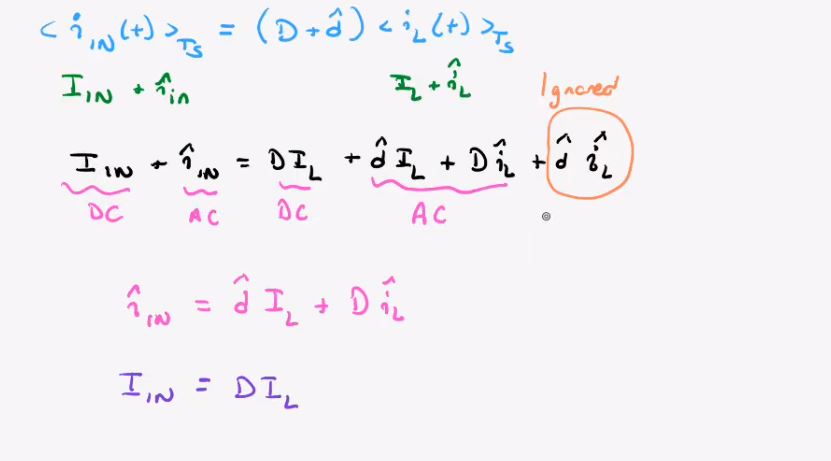 < i_IN(t) >_Ts = (D + d̂) < i_L(t) >_Ts
I_IN + î_in I_L + î_L Ignored
I_IN + î_IN = D I_L + d̂ I_L + D î_L + d̂ î_L
DC AC DC AC
î_IN = d̂ I_L + D î_L
I_IN = D I_L